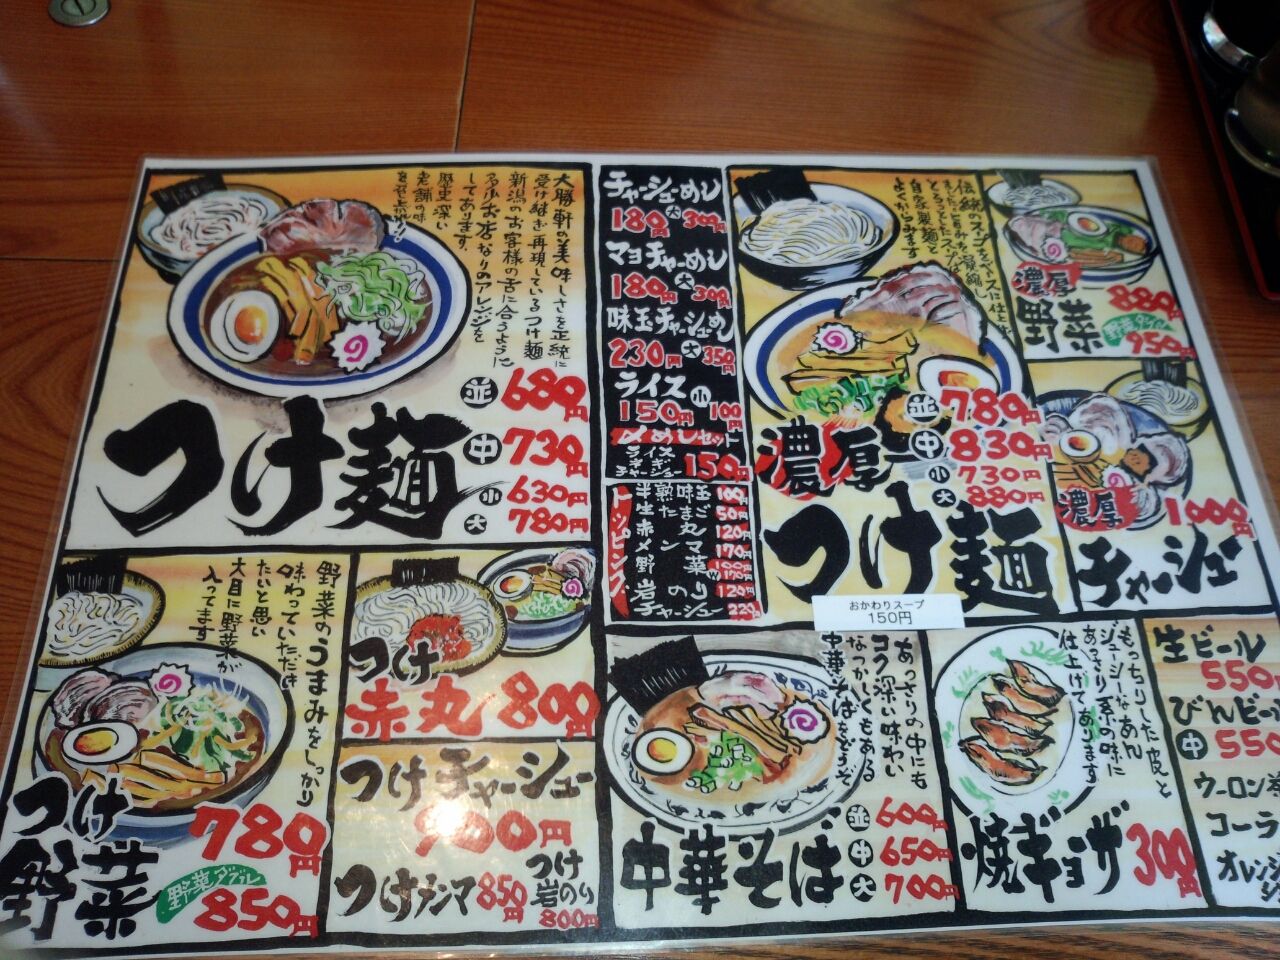 大勝軒の美味しさを正統に
受け継ぎ再現しているつけ麺
新潟のお客様の舌に合うように
多少お店なりのアレンジを
してあります。
歴史深い
老舗の味
並 680円
中 730円
小 630円
大 780円
つけ麺
チャーシューめし
180円 大 300円
マヨチャーめし
180円 大 300円
味玉チャーシューめし
230円 大 350円
ライス 小
150円 100円
〆めしセット
ライス
ねぎ
チャーシュー 150円
トッピング
味玉 100円
半熟たまご
生 50円
赤丸 120円
メンマ 170円
野菜 100円
岩のり 120円
チャーシュー 220円
伝統のスープをベースに仕上
自家製麺と
よくからみます
並 780円
中 830円
小 730円
大 880円
濃厚
つけ麺
濃厚
野菜
880円
野菜ダブル
950円
濃厚
1000円
チャーシュー
おかわりスープ
150円
野菜のうまみをしっかり
味わっていただき
たいと思い
大目に野菜が
入ってます
つけ
野菜
780円
野菜ダブル
850円
つけ
赤丸 800円
つけチャーシュー
900円
つけメンマ 850円
つけ
岩のり
800円
あっさりの中にも
コク深い味わい
なつかしくもある
中華そばをどうぞ
中華そば
並 600円
中 650円
大 700円
もっちりした皮と
ジューシーなあん
あっさり系の味に
仕上げてあります
焼ギョーザ 300円
生ビール
550円
びんビール
中 550
ウーロン茶
コーラ
オレンジ